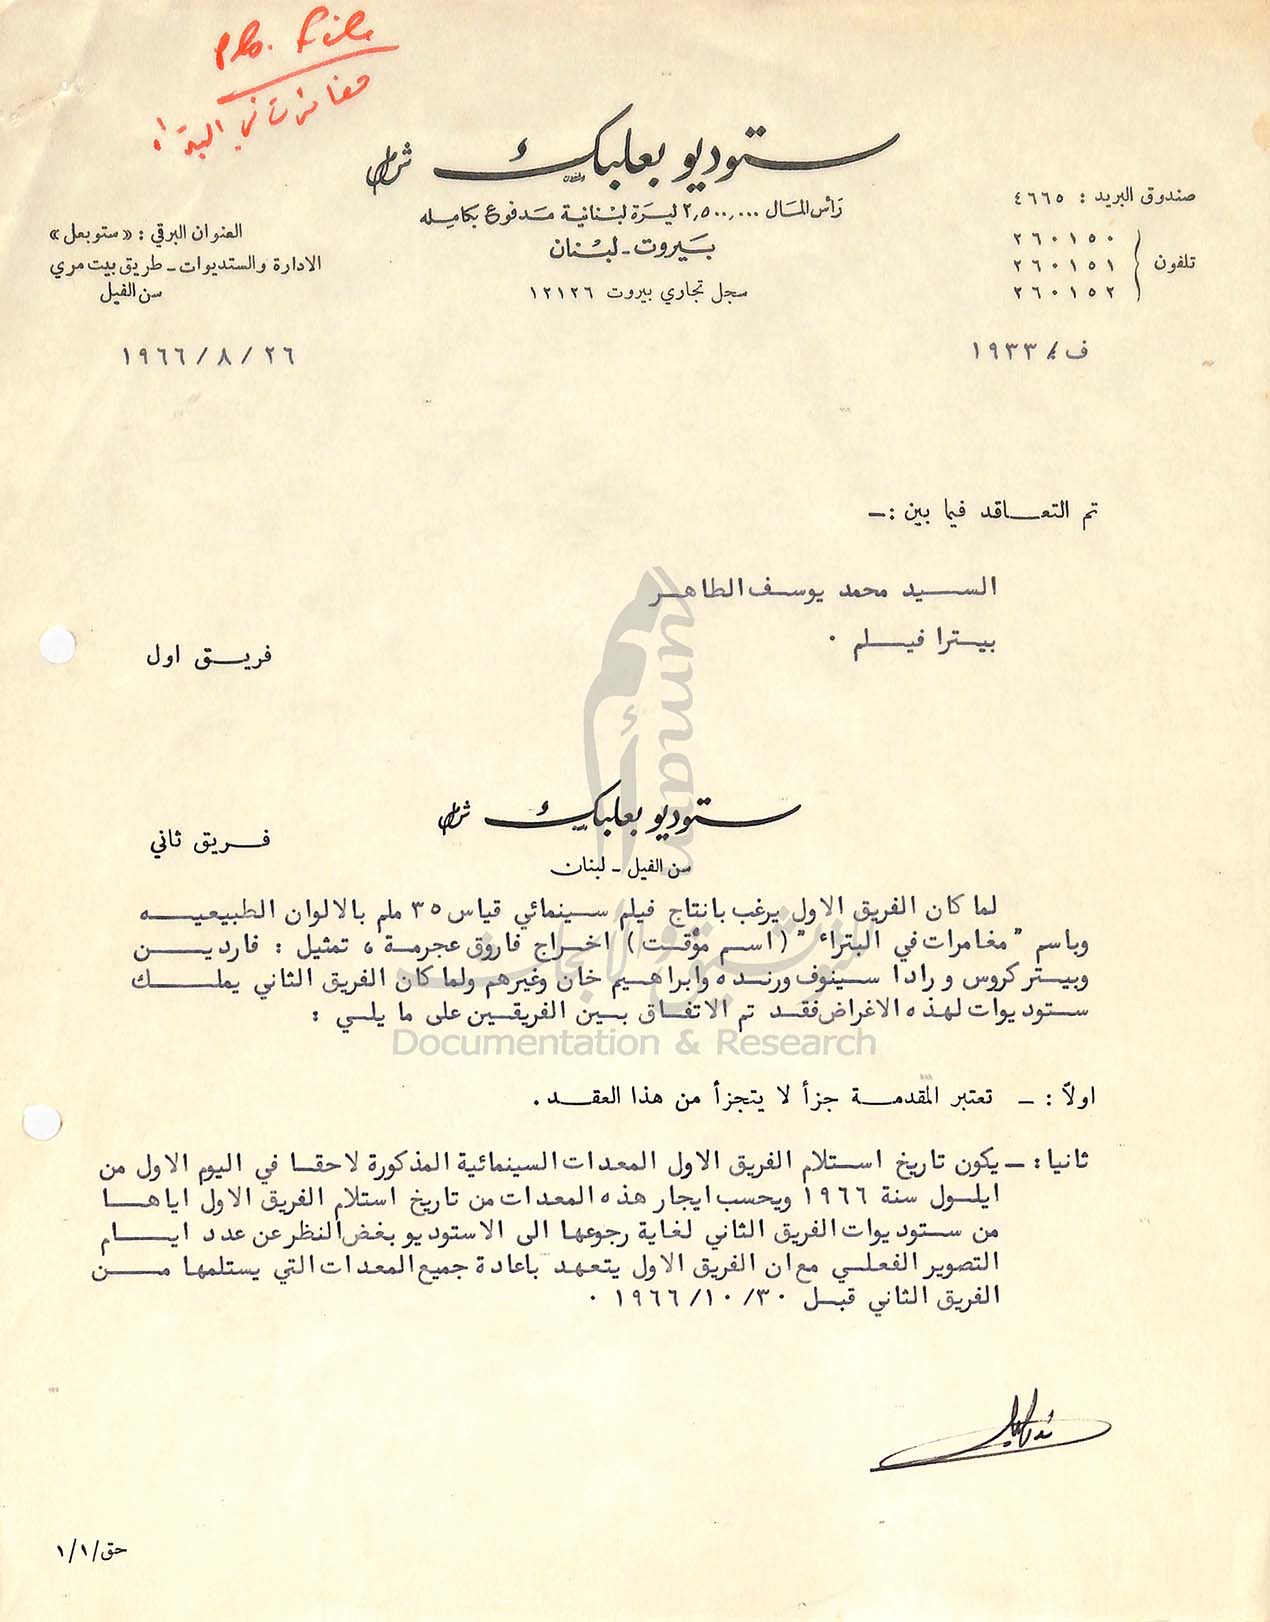 file
مغامرات في البتراء
ستوديو بعلبك ش.م.ل
رأس المال ٢,٥٠٠,٠٠٠ ليرة لبنانية مدفوع بكامله
بيروت - لبنان
سجل تجاري بيروت ١٢١٢٦
صندوق البريد : ٤٦٦٥
تلفون
٢٦٠١٥٠
٢٦٠١٥١
٢٦٠١٥٢
العنوان البرقي : «ستوبعل»
الادارة والستديوات - طريق بيت مري
سن الفيل
ف / ١٩٣٣
٢٦ / ٨ / ١٩٦٦
تم التعاقد فيما بين :-
السيد محمد يوسف الطاهر
بيترا فيلم ٠
فريق اول
ستوديو بعلبك ش.م.ل
سن الفيل - لبنان
فريق ثاني
لما كان الفريق الاول يرغب بانتاج فيلم سينمائي قياس ٣٥ ملم بالالوان الطبيعيه
وباسم "مغامرات في البتراء" (اسم مؤقت) اخراج فاروق عجرمة ، تمثيل : فاردين
وبيتر كروس و رادا سينوف ورنده وابراهيم خان وغيرهم ولما كان الفريق الثاني يملك
ستوديوات لهذه الاغراض فقد تم الاتفاق بين الفريقين على ما يلي :
اولاً : - تعتبر المقدمة جزأ لا يتجزأ من هذا العقد .
ثانيا : - يكون تاريخ استلام الفريق الاول المعدات السينمائية المذكورة لاحقا في اليوم الاول من
ايلول سنة ١٩٦٦ ويحسب ايجار هذه المعدات من تاريخ استلام الفريق الاول اياها
من ستوديوات الفريق الثاني لغاية رجوعها الى الاستوديو بغض النظر عن عدد ايام
التصوير الفعلي مع ان الفريق الاول يتعهد باعادة جميع المعدات التي يستلمها من
الفريق الثاني قبل ٣٠/١٠/١٩٦٦ ٠
حق/١/١
umam
أمم للتوثيق والأبحاث
Documentation & Research